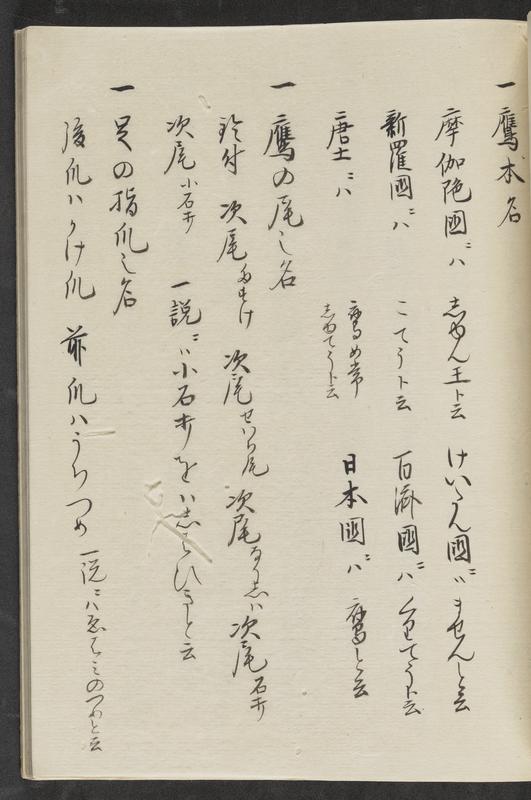 一鷹本名
摩伽陀國ニハ しゆん王ト云 けいたん國ニハ ませんしと云
新羅國ニハ こてうト云 百済國ニハ くりてうト云
唐土ニハ 日本國ニハ 鷹と云
一鷹の尾之名
鈴付 次尾 たすけ 次尾 ならし尾 次尾 ならしハ 次尾 石打
次尾 小石打 一説ニハ小石打をハ と云
一足の指爪之名
後爪ハかけ爪 前爪ハうちつめ 一説ニハ のつめと云